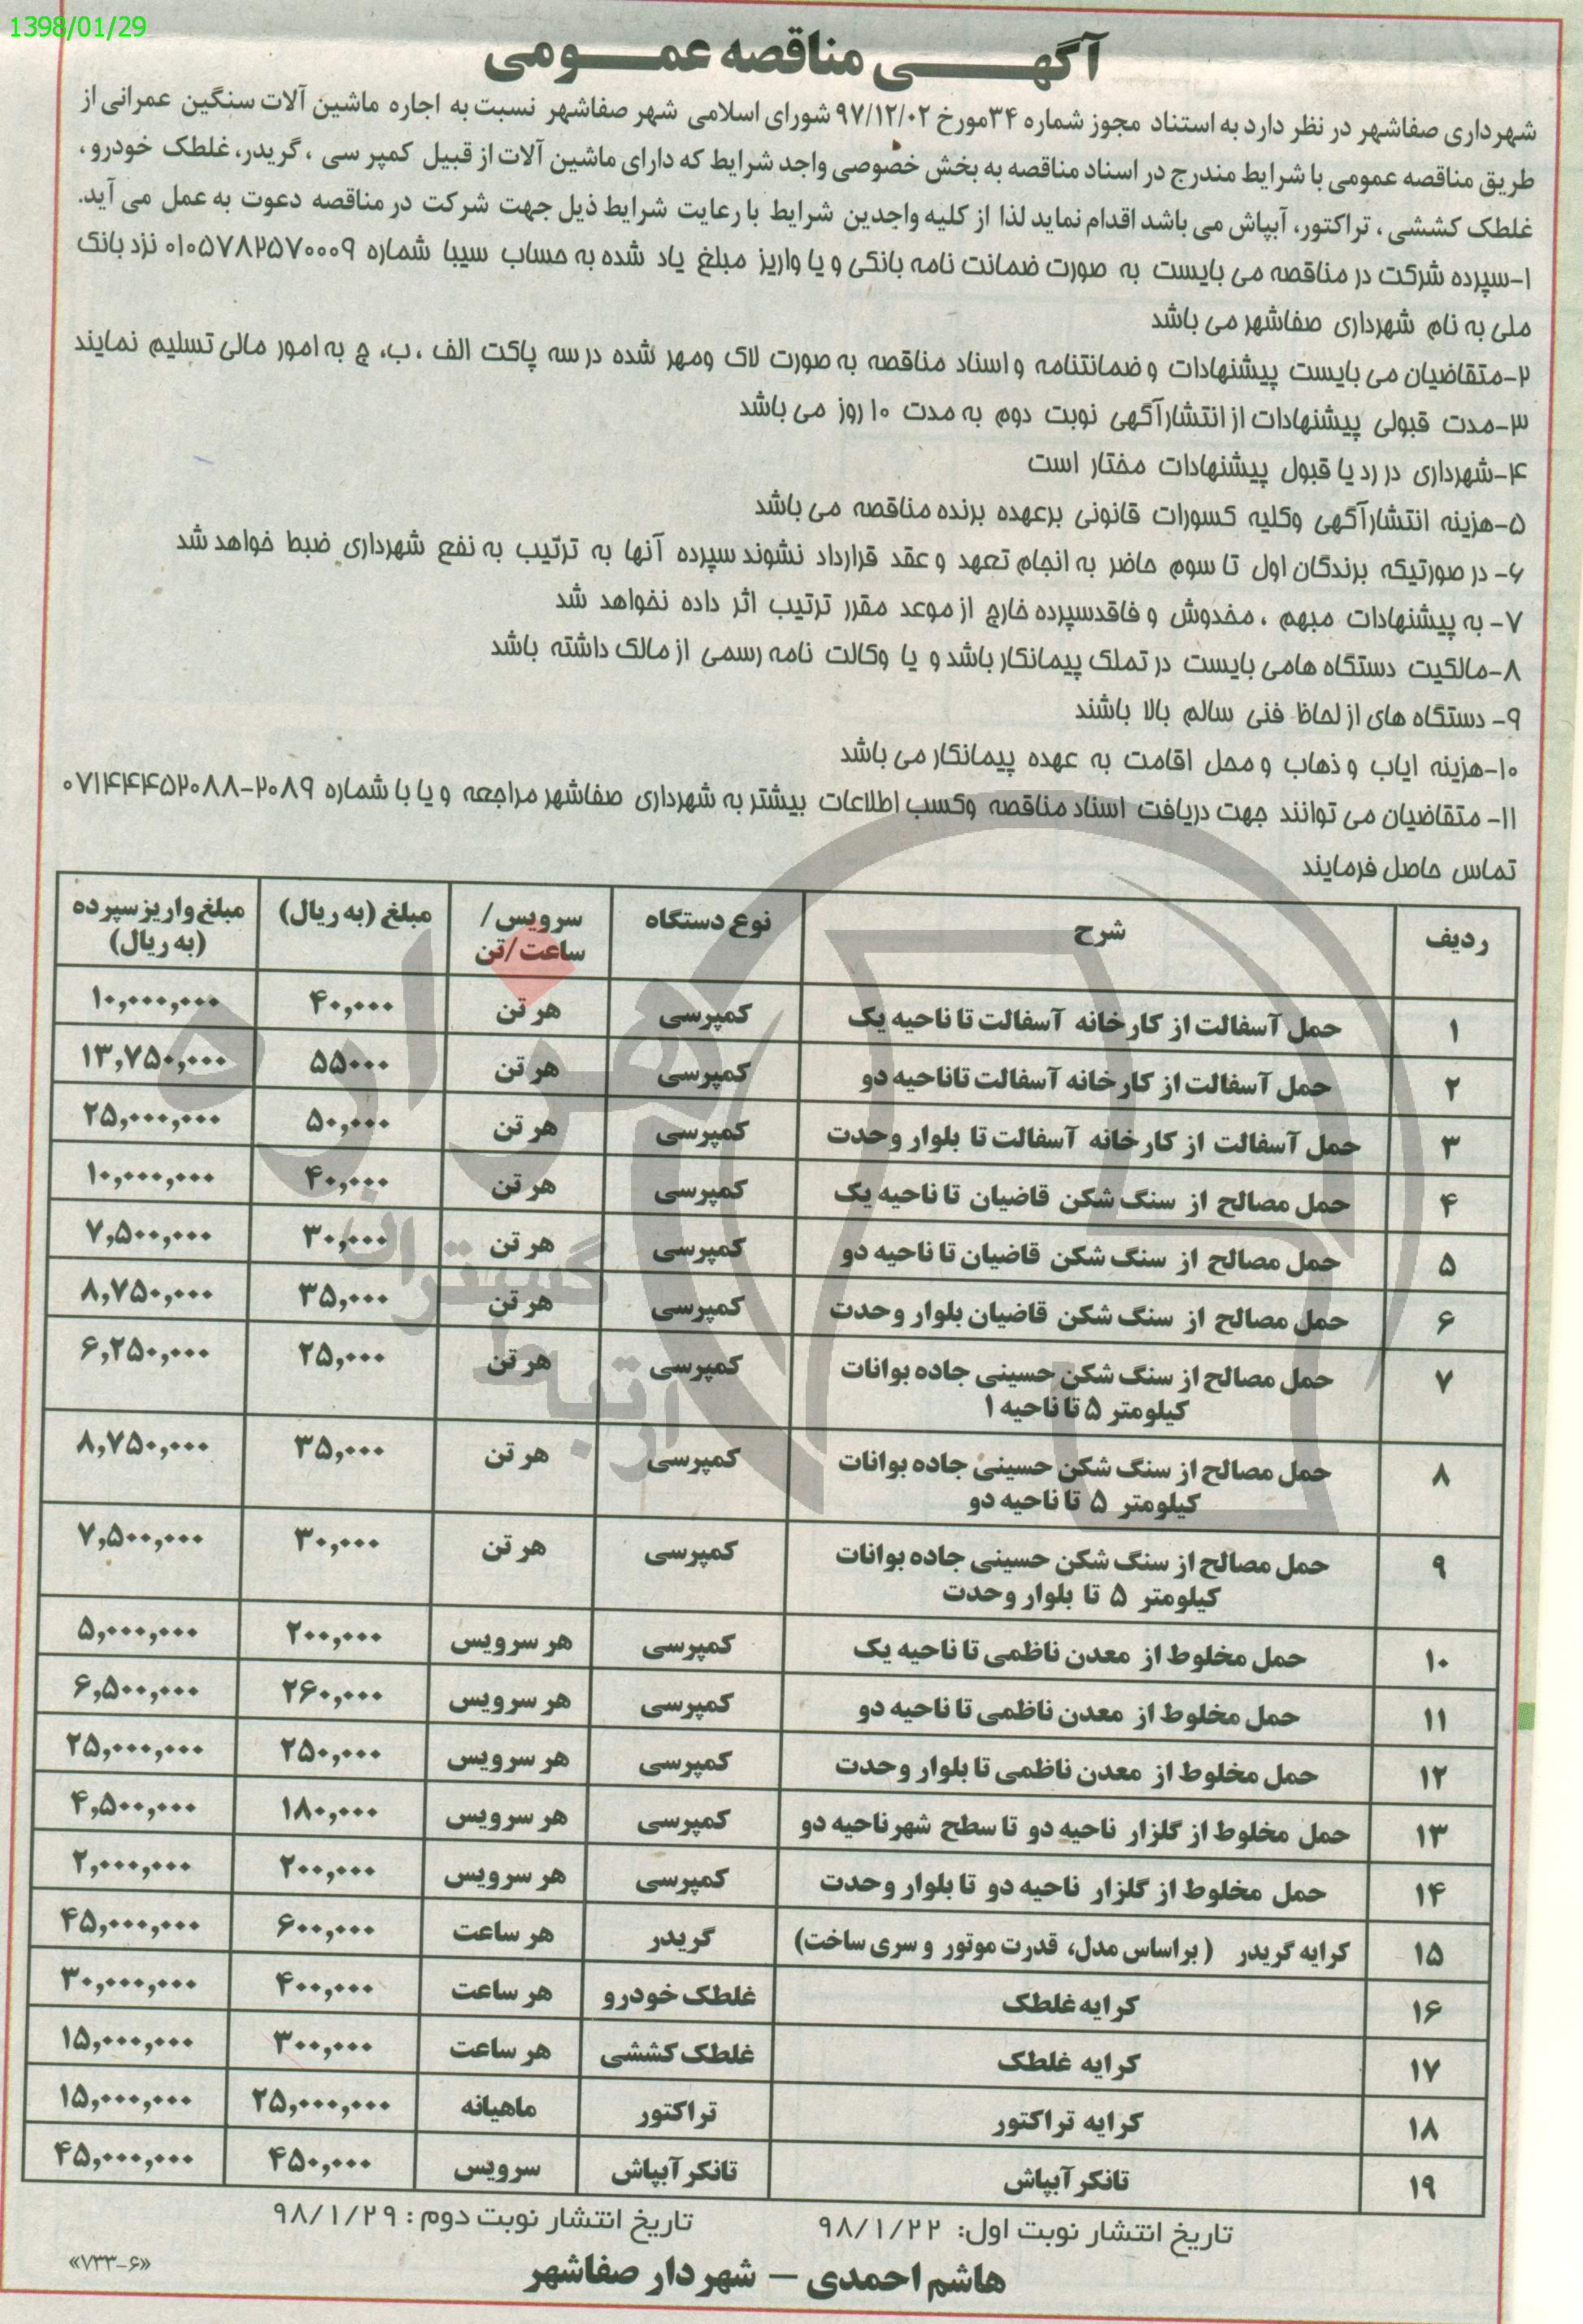 1398/01/29
آگهی مناقصه عمومی
شهرداری صفاشهر در نظر دارد به استناد مجوز شماره ۳۴مورخ ۹۷/۱۲/۰۲ شورای اسلامی شهر صفاشهر نسبت به اجاره ماشین آلات سنگین عمرانی از
طریق مناقصه عمومی با شرایط مندرج در اسناد مناقصه به بخش خصوصی واجد شرایط که دارای ماشین آلات از قبیل کمپر سی ، گریدر، غلطک خودرو ،
غلطک کششی ، تراکتور، آبپاش می باشد اقدام نماید لذا از کلیه واجدین شرایط با رعایت شرایط ذیل جهت شرکت در مناقصه دعوت به عمل می آید.
۱-سپرده شرکت در مناقصه می بایست به صورت ضمانت نامه بانکی و یا واریز مبلغ یاد شده به حساب سیبا شماره ۰۱۰۵۷۸۲۵۷۰۰۰۹ نزد بانک
ملی به نام شهرداری صفاشهر می باشد
۲-متقاضیان می بایست پیشنهادات و ضمانتنامه و اسناد مناقصه به صورت لاک ومهر شده در سه پاکت الف ، ب، ج به امور مالی تسلیم نمایند
۳-مدت قبولی پیشنهادات از انتشارآگهی نوبت دوم به مدت ۱۰ روز می باشد
۴-شهرداری در رد یا قبول پیشنهادات مختار است
۵-هزینه انتشارآگهی وکلیه کسورات قانونی برعهده برنده مناقصه می باشد
۶- در صورتیکه برندگان اول تا سوم حاضر به انجام تعهد و عقد قرارداد نشوند سپرده آنها به ترتیب به نفع شهرداری ضبط خواهد شد
۷- به پیشنهادات مبهم ، مخدوش و فاقدسپرده خارج از موعد مقرر ترتیب اثر داده نخواهد شد
۸-مالکیت دستگاه هامی بایست در تملک پیمانکار باشد و یا وکالت نامه رسمی از مالک داشته باشد
۹- دستگاه های از لحاظ فنی سالم بالا باشند
۱۰-هزینه ایاب و ذهاب و محل اقامت به عهده پیمانکار می باشد
۱۱- متقاضیان می توانند جهت دریافت اسناد مناقصه وکسب اطلاعات بیشتر به شهرداری صفاشهر مراجعه و یا با شماره ۲۰۸۹-۰۷۱۴۴۴۵۲۰۸۸
تماس حاصل فرمایند
ردیف شرح نوع دستگاه سرویس/ ساعت/تن مبلغ (به ریال) مبلغ واریز سپرده (به ریال)
۱ حمل آسفالت از کارخانه آسفالت تا ناحیه یک کمپرسی هر تن ۴۰,۰۰۰ ۱۰,۰۰۰,۰۰۰
۲ حمل آسفالت از کارخانه آسفالت تاناحیه دو کمپرسی هر تن ۵۵۰۰۰ ۱۳,۷۵۰,۰۰۰
۳ حمل آسفالت از کارخانه آسفالت تا بلوار وحدت کمپرسی هر تن ۵۰,۰۰۰ ۲۵,۰۰۰,۰۰۰
۴ حمل مصالح از سنگ شکن قاضیان تا ناحیه یک کمپرسی هر تن ۴۰,۰۰۰ ۱۰,۰۰۰,۰۰۰
۵ حمل مصالح از سنگ شکن قاضیان تا ناحیه دو کمپرسی هر تن ۳۰,۰۰۰ ۷,۵۰۰,۰۰۰
۶ حمل مصالح از سنگ شکن قاضیان بلوار وحدت کمپرسی هر تن ۳۵,۰۰۰ ۸,۷۵۰,۰۰۰
۷ حمل مصالح از سنگ شکن حسینی جاده بوانات کمپرسی هر تن ۲۵,۰۰۰ ۶,۲۵۰,۰۰۰
کیلومتر ۵ تا ناحیه ۱
۸ حمل مصالح از سنگ شکن حسینی جاده بوانات کمپرسی هر تن ۳۵,۰۰۰ ۸,۷۵۰,۰۰۰
کیلومتر ۵ تا ناحیه دو
۹ حمل مصالح از سنگ شکن حسینی جاده بوانات کمپرسی هر تن ۳۰,۰۰۰ ۷,۵۰۰,۰۰۰
کیلومتر ۵ تا بلوار وحدت
۱۰ حمل مخلوط از معدن ناظمی تا ناحیه یک کمپرسی هر سرویس ۲۰۰,۰۰۰ ۵,۰۰۰,۰۰۰
۱۱ حمل مخلوط از معدن ناظمی تا ناحیه دو کمپرسی هر سرویس ۲۶۰,۰۰۰ ۶,۵۰۰,۰۰۰
۱۲ حمل مخلوط از معدن ناظمی تا بلوار وحدت کمپرسی هر سرویس ۲۵۰,۰۰۰ ۲۵,۰۰۰,۰۰۰
۱۳ حمل مخلوط از گلزار ناحیه دو تا سطح شهرناحیه دو کمپرسی هر سرویس ۱۸۰,۰۰۰ ۴,۵۰۰,۰۰۰
۱۴ حمل مخلوط از گلزار ناحیه دو تا بلوار وحدت کمپرسی هر سرویس ۲۰۰,۰۰۰ ۲,۰۰۰,۰۰۰
۱۵ کرایه گریدر (براساس مدل، قدرت موتور و سری ساخت) گریدر هر ساعت ۶۰۰,۰۰۰ ۴۵,۰۰۰,۰۰۰
۱۶ کرایه غلطک غلطک خودرو هر ساعت ۴۰۰,۰۰۰ ۳۰,۰۰۰,۰۰۰
۱۷ کرایه غلطک غلطک کششی هر ساعت ۳۰۰,۰۰۰ ۱۵,۰۰۰,۰۰۰
۱۸ کرایه تراکتور تراکتور ماهیانه ۲۵,۰۰۰,۰۰۰ ۱۵,۰۰۰,۰۰۰
۱۹ تانکر آبپاش تانکر آبپاش سرویس ۴۵۰,۰۰۰ ۴۵,۰۰۰,۰۰۰
تاریخ انتشار نوبت اول: ۹۸/۱/۲۲ تاریخ انتشار نوبت دوم: ۹۸/۱/۲۹
هاشم احمدی – شهردار صفاشهر
«۷۳۳-۶»
هزاره
گستران
ارتباط